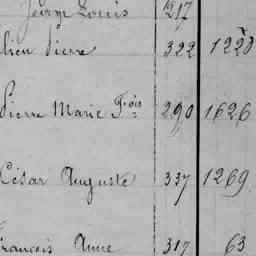 George Louis 217
lien Pierre 322 1228
Pierre Marie Fçois 290 1626
César Auguste 337 1269
François Anne 317 63